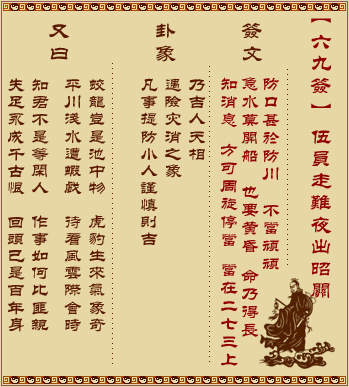 【六九簽】 伍員走難夜出昭關
簽文
防口甚於防川 不當頑頑
急水莫開船 也要黃昏 命乃得長
知消息 方可周旋停當 當在二七三上
卦象
乃吉人天相
遇險災消之象
凡事提防小人謹慎則吉
又曰
蛟龍豈是池中物 虎豹生來氣象奇
平川淺水遭蝦戲 待看風雲際會時
知君不是等閑人 作事如何比匪親
失足永成千古恨 回頭已是百年身